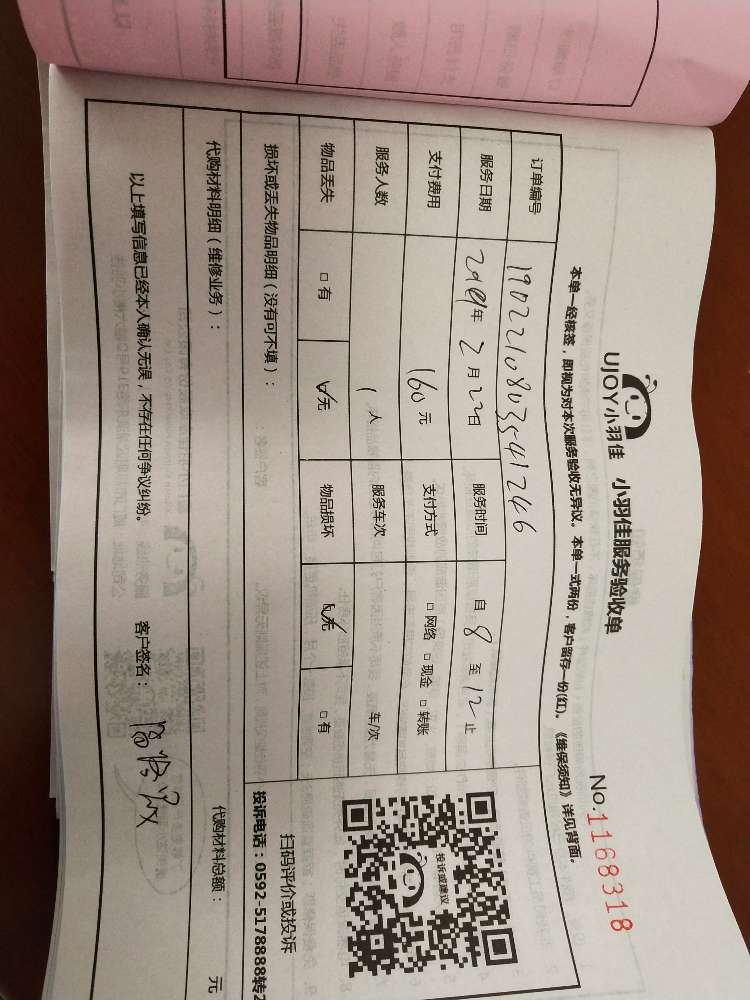 UJOY小羽佳 小羽佳服务验收单
No.1168318
本单一经核签，即视为对本次服务验收无异议。本单一式两份，客户留存一份(红)。《维保须知》详见背面。
订单编号 1902210803541246
服务日期 2019年2月22日 服务时间 自8至12止
支付费用 160元 支付方式 □网络 □现金 □转账
服务人数 1人 服务车次 车/次
物品丢失 □有 □无 物品损坏 □无 □有
损坏或丢失物品明细（没有可不填）：
投诉或建议
扫码评价或投诉
投诉电话：0592-5178888转2
代购材料明细（维修业务）： 代购材料总额： 元
以上填写信息已经本人确认无误，不存在任何争议纠纷。 客户签名：